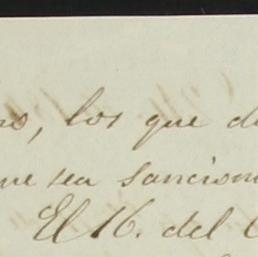 los que
sea sancion
El 16. del